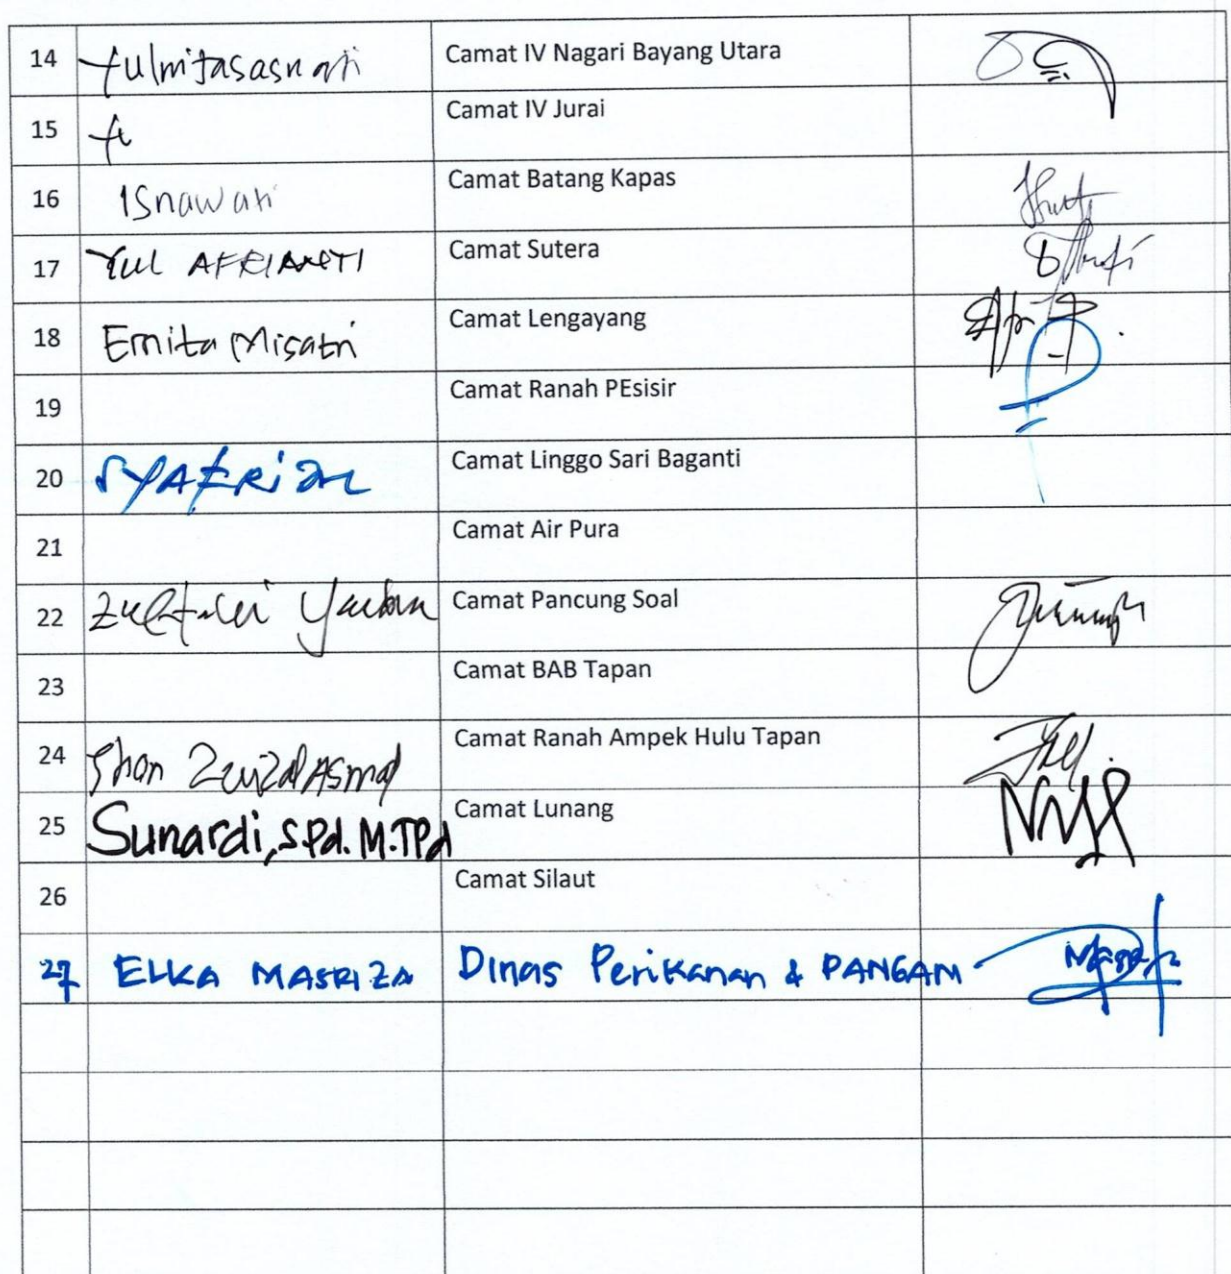 14 Yulmitasasnati Camat IV Nagari Bayang Utara
15 Camat IV Jurai
16 Isnawati Camat Batang Kapas
17 Yul AFRIANTI Camat Sutera
18 Emita Misatri Camat Lengayang
19 Camat Ranah PEsisir
20 SYAFRIZAL Camat Linggo Sari Baganti
21 Camat Air Pura
22 Camat Pancung Soal
23 Camat BAB Tapan
24 Camat Ranah Ampek Hulu Tapan
25 Sunardi, S.Pd. M.TPd Camat Lunang
26 Camat Silaut
27 ELKA MASRIZA Dinas Perikanan & PANGAN